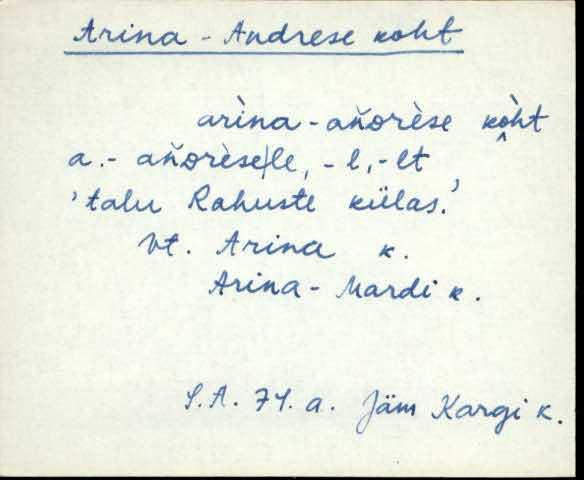 Arina - Andrese koht
arìna - añdrèse kò̭ht
a. - añdrèse|le, - l, - lt
'talu Rahuste külas.'
vt. Arina k.
Arina - Mardi k.
S.A. 71. a. Jäm Kargi k.